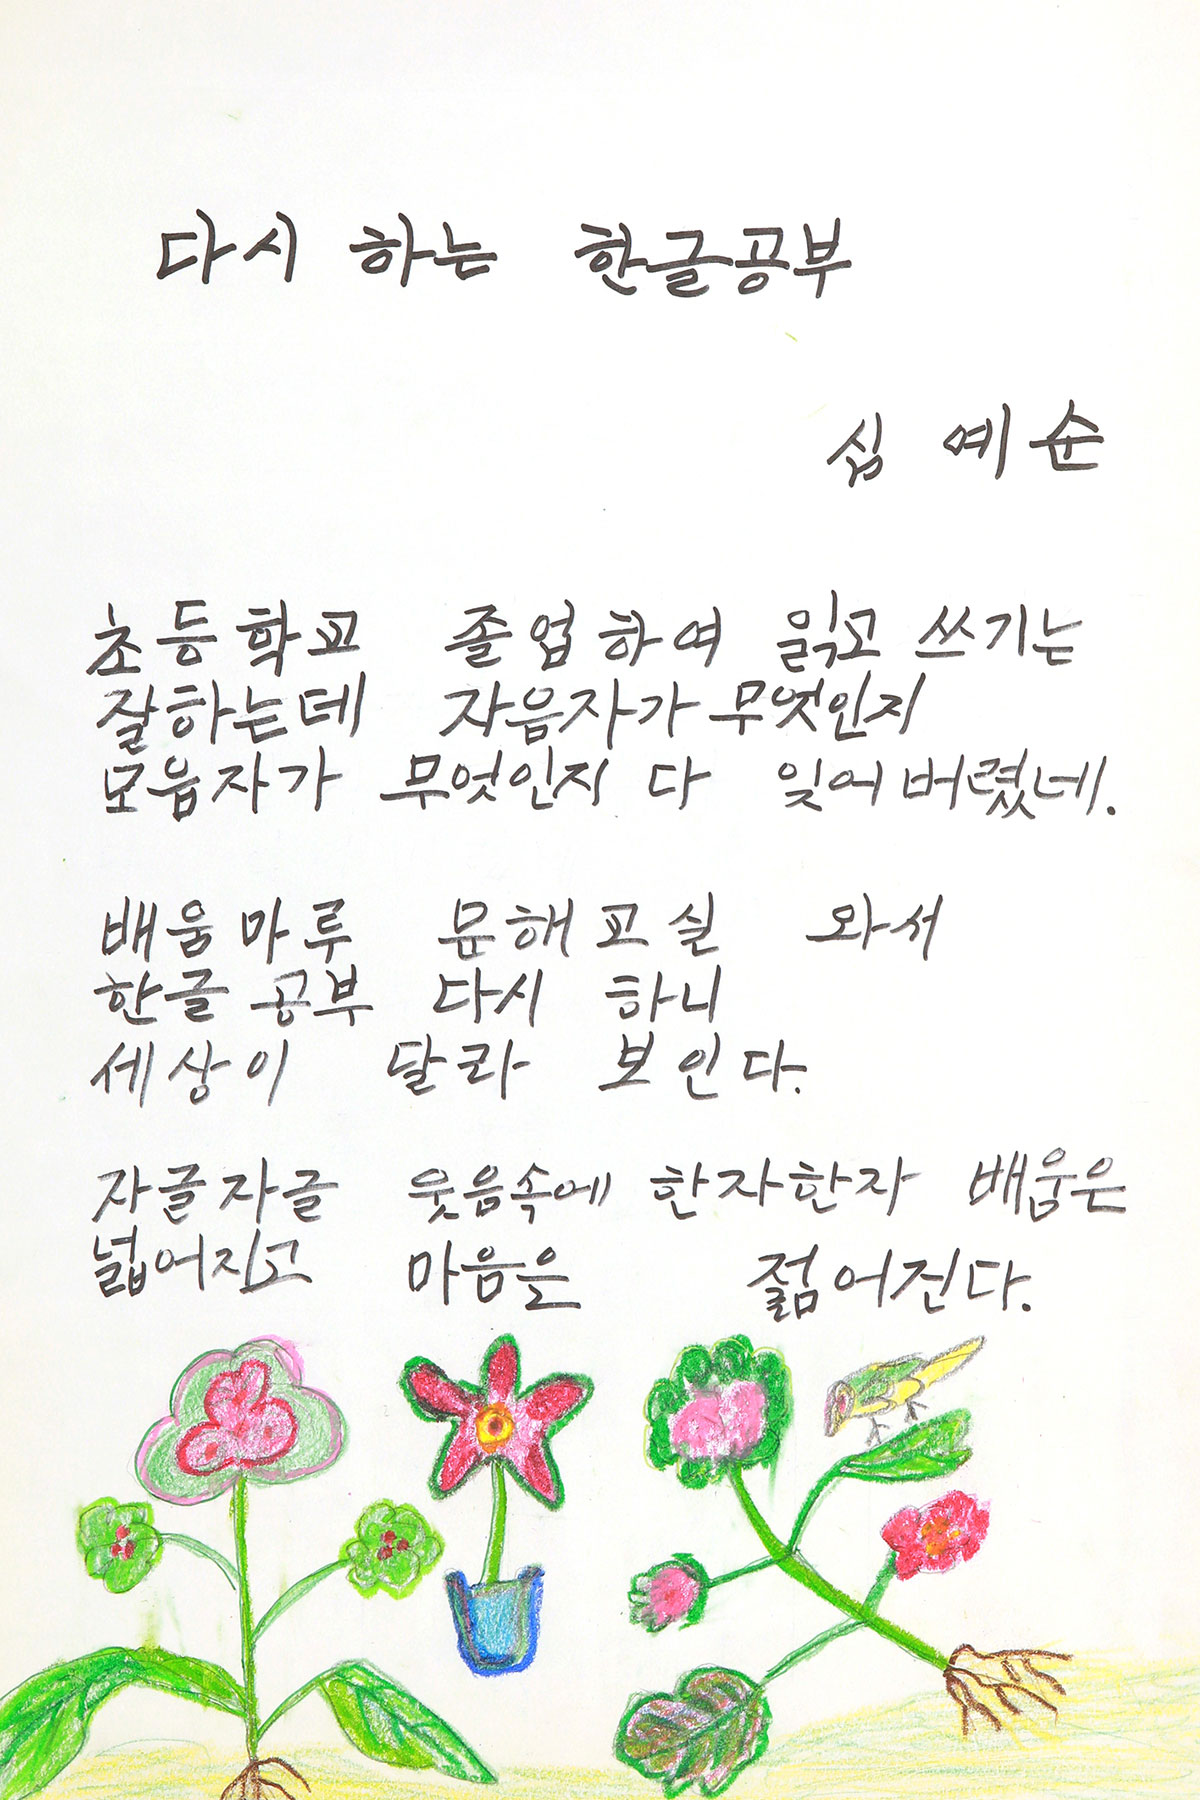 다시 하는 한글공부
심 예순
초등학교 졸업하여 읽고 쓰기는
잘하는데 자음자가 무엇인지
모음자가 무엇인지 다 잊어버렸네.
배움마루 문해교실 와서
한글공부 다시 하니
세상이 달라 보인다.
자글자글 웃음속에 한자한자 배움은
넓어지고 마음은 젊어진다.